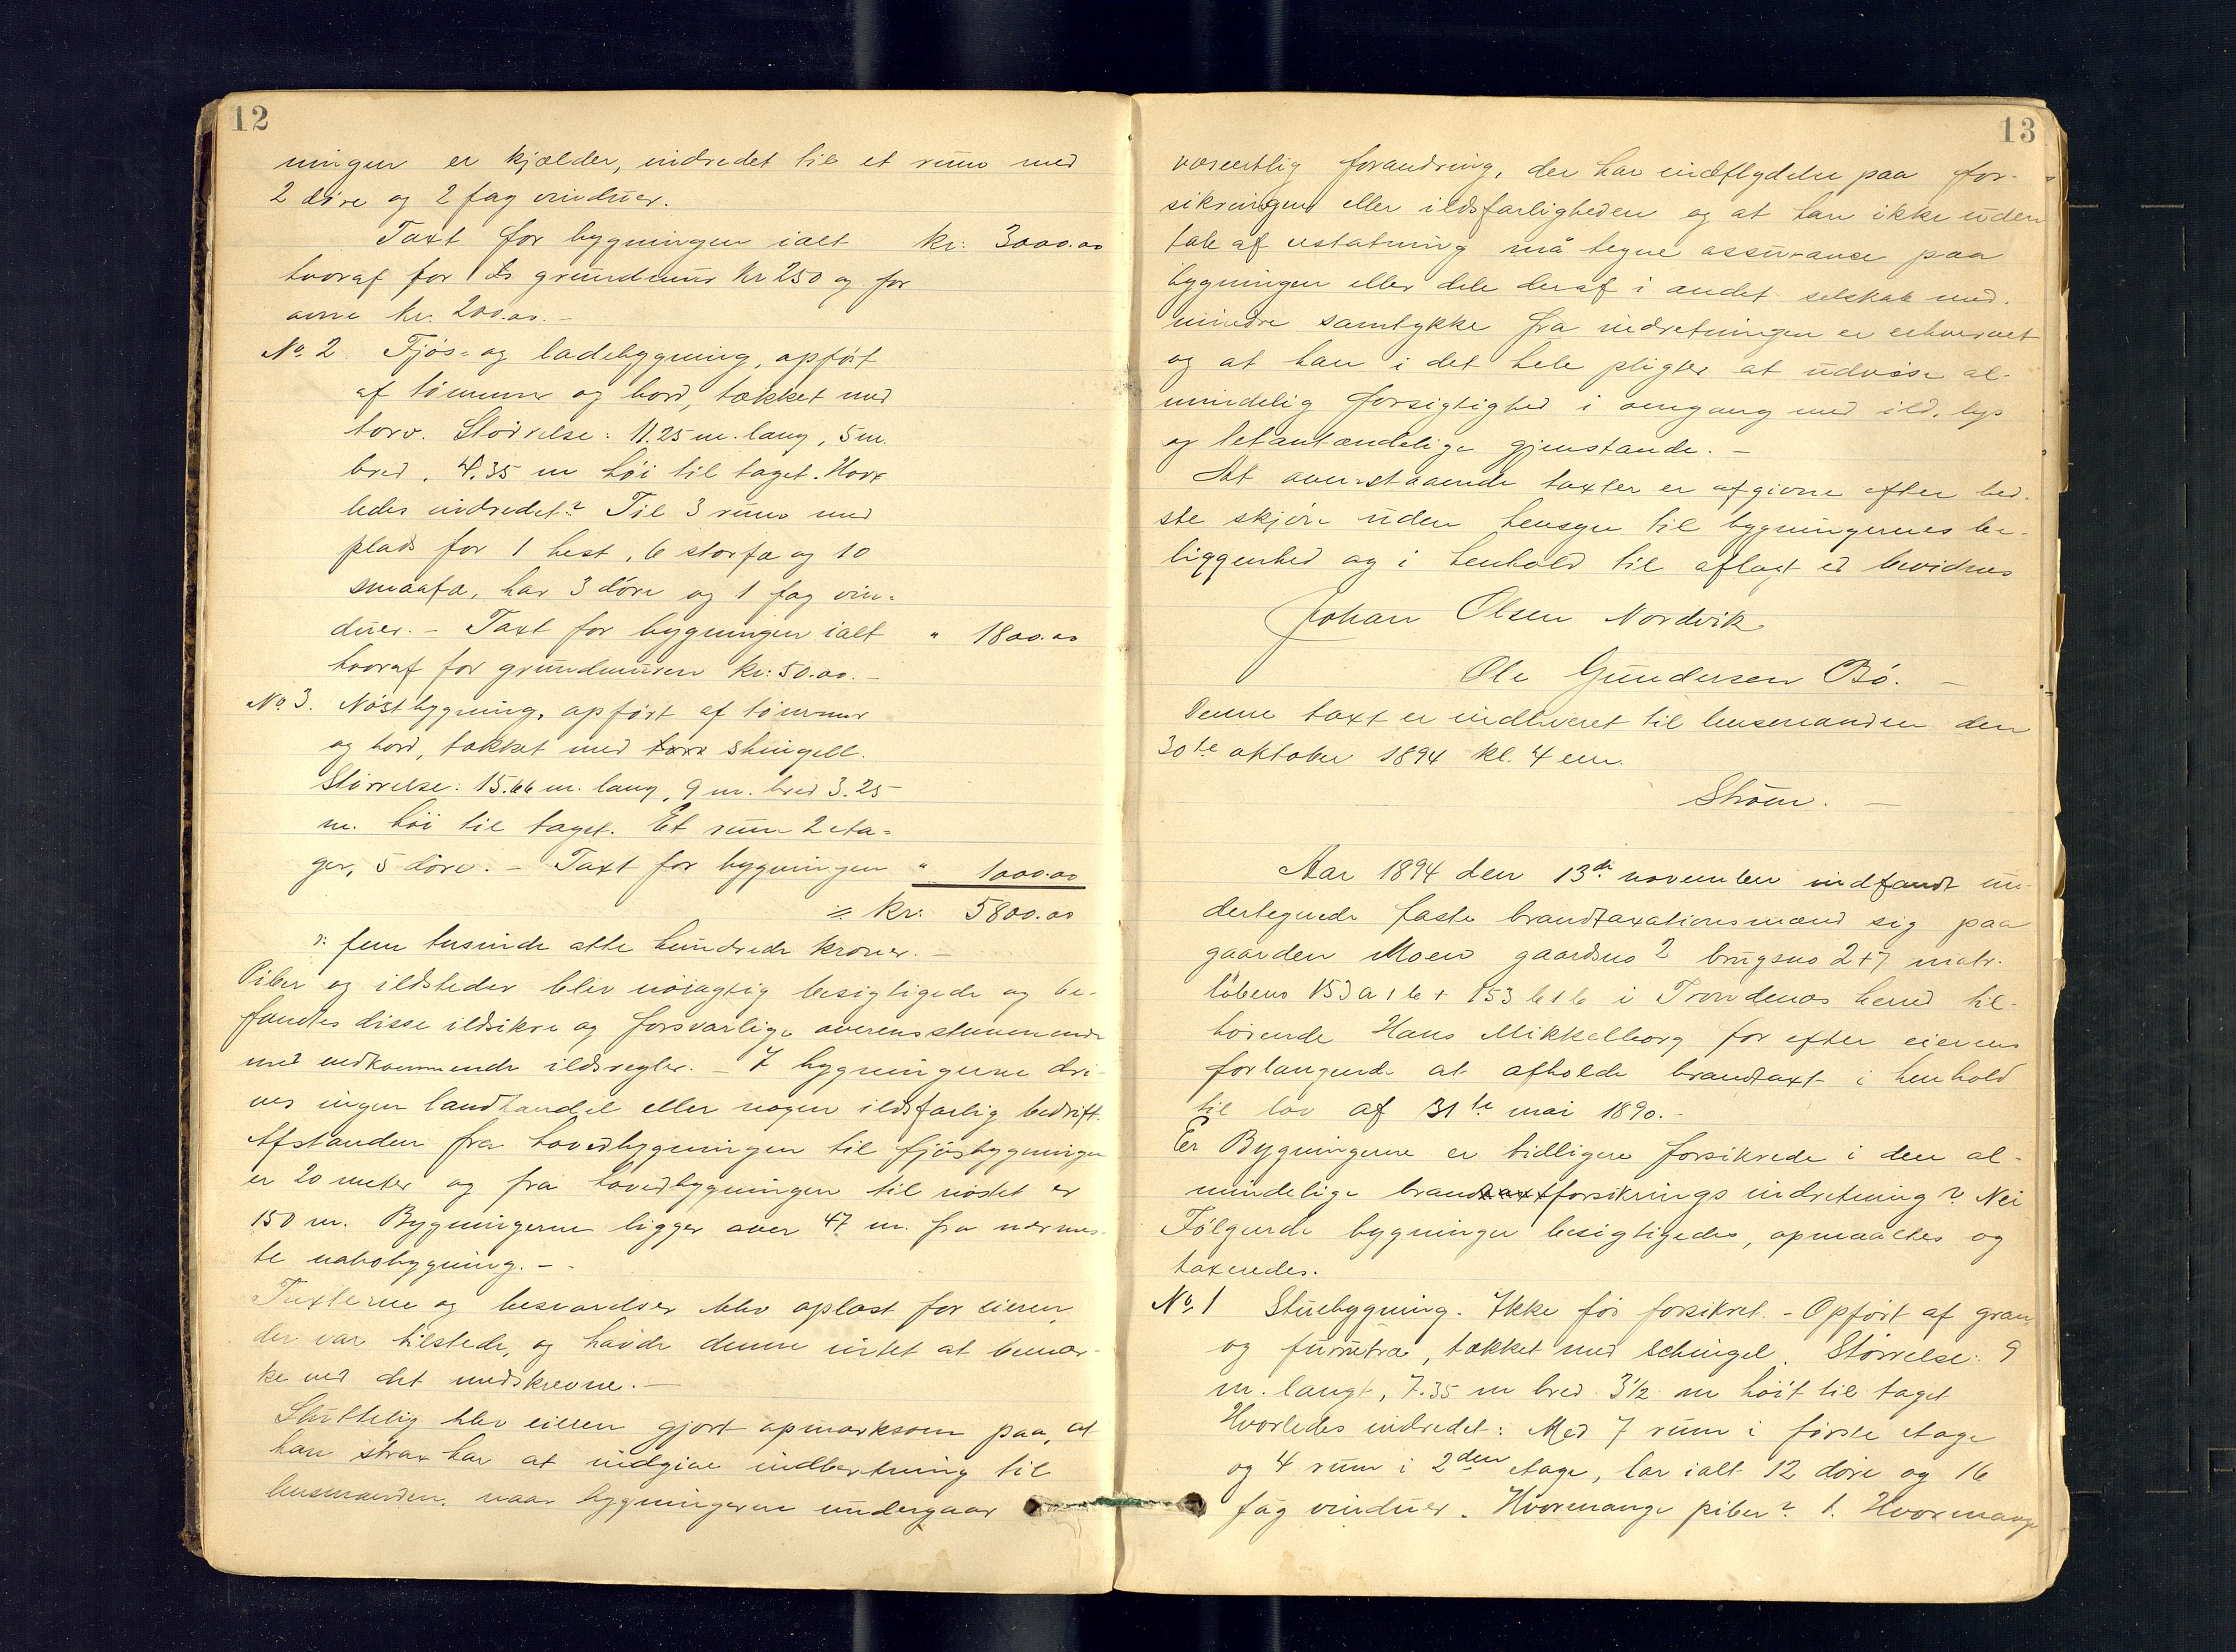 12
ningen er kjælder, indredet til et rum med
2 döre og 2 fag vinduer.
Taxt for bygningen ialt kr: 3000.00
hvoraf for grundmur kr 250 og for
ovne kr. 200.00. –
No 2 Fjös- og ladebygning, opfört
af tömmer og bord, tækket med
torv. Störrelse: 11.25 m. lang, 5 m.
bred, 4.35 m höi til taget. Hvor
ledes indredet? Til 3 rum med
plads for 1 hest, 6 storfæ og 10
smaafæ, har 3 döre og 1 fag vin-
duer. – Taxt for bygningen ialt " 1800.00
hvoraf for grundmuren kr: 50.00. –
No 3. Nöstbygning, opfört af tömmer
og bord, tækket med torv shingell.
Störrelse: 15.66 m. lang, 9 m. bred 3.25
m. höi til taget. Et rum 2 eta-
ger, 5 döre. – Taxt for bygningen " 1000.00
= kr: 5800.00
ɔ: fem tusinde otte hundrede kroner. –
Piber og ildsteder blev nöiagtig besigtigede og be-
fandtes disse ildsikre og forsvarlige overensstemmende
med vedkommende ildsregler. – I bygningerne dri-
ves ingen landhandel eller nogen ildsfarlig bedrift.
Afstanden fra hovedbygningen til fjösbygningen
er 20 meter og fra hovedbygningen til nöstet er
150 m. Bygningerne ligger over 47 m. fra nærmes-
te nabobygning. –
Taxterne og besvarelser blev oplæst for eieren,
der var tilstede, og havde denne intet at bemær-
ke ved det nedskrevne. –
Sluttelig blev eieren gjort opmærksom paa, at
han strax har at indgive indberetning til
lensmanden, naar bygningerne undergaar
13
væsentlig forandring, der har indflydelse paa for-
sikringen eller ildsfarligheden og at han ikke uden
tab af erstatning må tegne assurance paa
bygningen eller dele deraf i andet selskab med-
mindre samtykke fra indretningen er erhvervet
og at han i det hele pligter at udvise al-
mindelig forsigtighed i omgang med ild, lys
og letantændelige gjenstande. –
At ovenstaaende taxter er afgivne efter bed-
ste skjön uden hensyn til bygningernes be-
liggenhed og i henhold til aflagt ed bevidnes
Johan Olsen Nordvik
Ole Gundersen Bö. –
Denne taxt er indleveret til lensmanden den
30te oktober 1894 kl. 4 em.
Ström. –
Aar 1894 den 13de november indfandt un-
dertegnede faste brandtaxationsmænd sig paa
gaarden Moen gaardsno 2 brugsno 2+7 matr.
löbeno 153 a 1 b + 153 b 1 b i Trondenæs herred til-
hörende Hans Mikkelborg for efter eierens
forlangende at afholde brandtaxt i henhold
til lov af 31te mai 1890. –
Er Bygningerne er tidligere forsikrede i den al-
mindelige brandtaxtforsikrings indretning? Nei
Fölgende bygninger besigtigedes, opmaaltes og
taxeredes.
No. 1 Stuebygning. Ikke för forsikret. – Opfört af gran
og furutræ, tækket med schingel. Störrelse: 9
m. langt, 7.35 m bred 3½ m höit til taget
Hvorledes indredet: Med 7 rum i förste etage
og 4 rum i 2den etage, har ialt 12 döre og 16
fag vinduer. Hvormange piber? 1. Hvormange